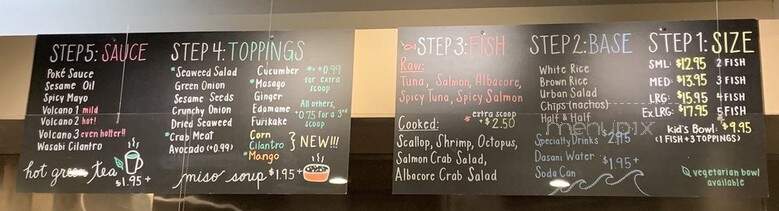 STEP 5: SAUCE
Poké Sauce
Sesame Oil
Spicy Mayo
Volcano 1 mild
Volcano 2 hot!
Volcano 3 even hotter!!
Wasabi Cilantro
hot green tea
$1.95+
STEP 4: TOPPINGS
*Seaweed Salad
Green Onion
Sesame Seeds
Crunchy Onion
Dried Seaweed
*Crab Meat
Avocado (+0.99)
Cucumber
*Masago
Ginger
Edamame
Furikake
Corn
Cilantro
*Mango
NEW!!!
*=+0.99
for extra
scoop
All others,
+0.75 for a 3rd
scoop
miso soup $1.95+
STEP 3: FISH
Raw:
Tuna, Salmon, Albacore,
Spicy Tuna, Spicy Salmon
*extra scoop
+$2.50
Cooked:
Scallop, Shrimp, Octopus,
Salmon Crab Salad,
Albacore Crab Salad
STEP 2: BASE
White Rice
Brown Rice
Urban Salad
Chips (nachos)
Half & Half
Specialty Drinks $2.95
Dasani Water
Soda Can
$1.95+
STEP 1: SIZE
SML: $12.95 2 FISH
MED: $13.95 3 FISH
LRG: $15.95 4 FISH
Ex.LRG: $17.95 5 FISH
Kid's Bowl: $9.95
(1 FISH + 3 TOPPINGS)
vegetarian bowl
available
menupix